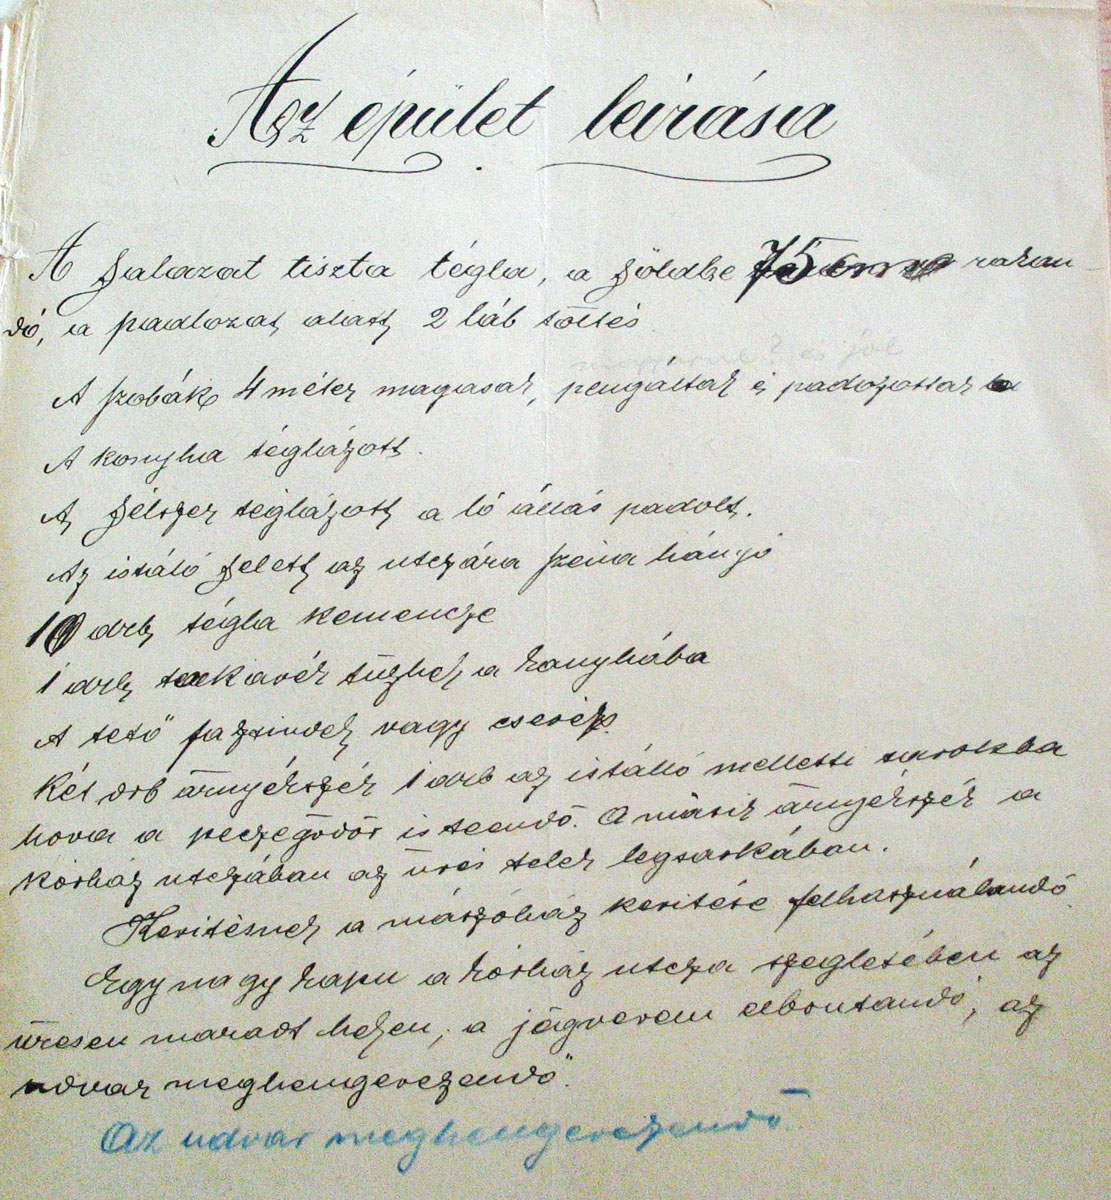 Az épület leirása
A falazat tiszta tégla, a földbe 75 cm rakan-
dó, a padlozat alatt 2 láb töltés
és jól
A szobák 4 méter magasak, pengáltak és padozottak
A konyha téglázott.
A félszer téglázott a ló állás padolt.
Az istáló felett az utczára széna hányó
1 drb tégla kemencze
1 drb takarék tűzhely a konyhába
A tető fazsindely vagy cserép.
Két drb árnyékszék 1 drb az istálló melletti sarokba
hova a peczegödör is teendő. A másik árnyékszék a
kórház utczában az üres telek legsarkában.
Keritésnek a mászóház keritése felhasználandó.
Egy nagy kapu a kórház utcza szegletében az
üresen maradt helyen, a jégverem elbontandó, az
udvar meghengerezendő.
Az udvar meghengerezendő.